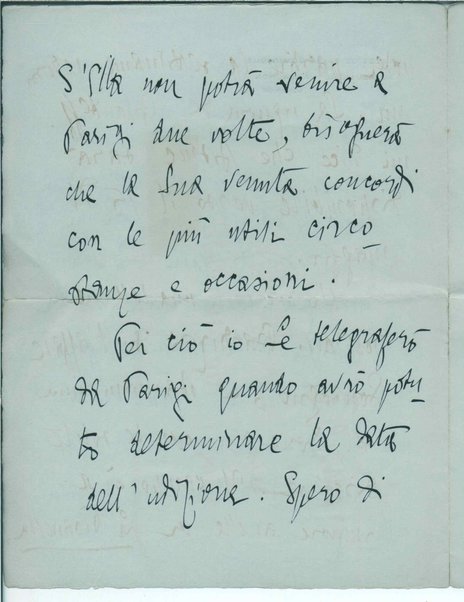 S'Ella non potrà venire a
Parigi due volte, bisognerà
che la Sua venuta concordi
con le più utili circo
stanze e occasioni.
Per ciò io Le telegraferò
da Parigi quando avrò potu-
to determinare la data
dell'udizione. Spero di